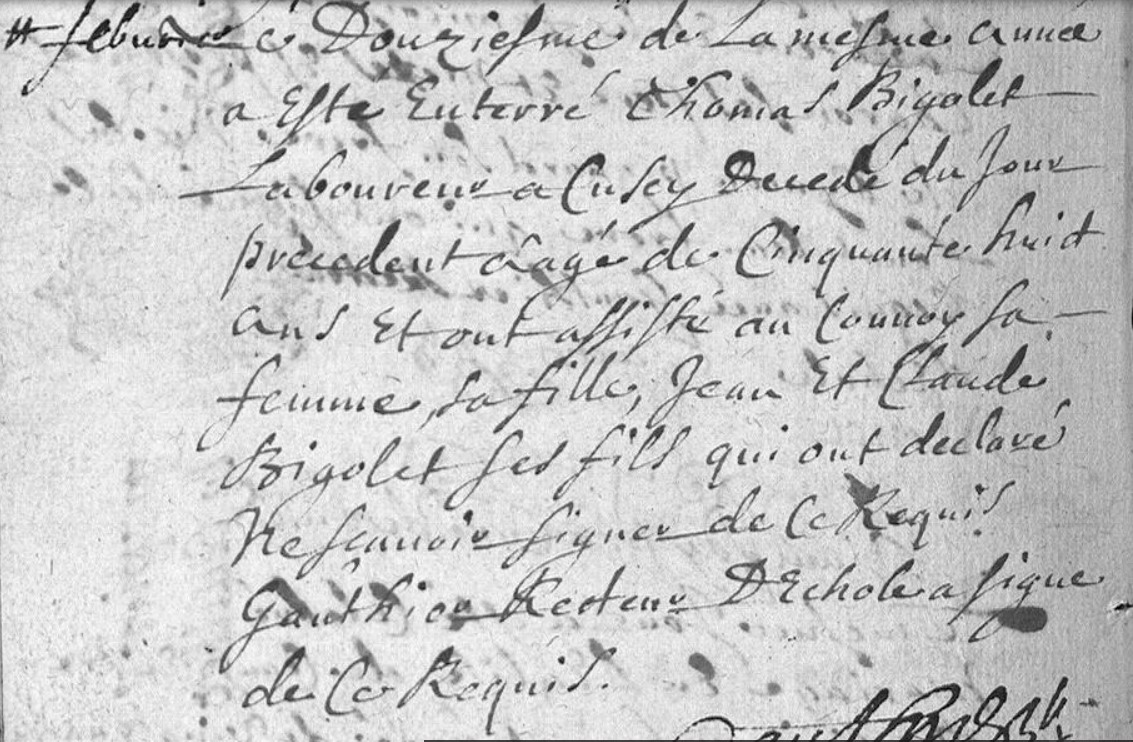 feburier Le Douziesme de La mesme année
a Esté Enterré Thomas Bigolet
Laboureur a Cusey Decedé du Jour
precedent aâgé de Cinquante huict
ans Et ont assisté au Conuoy sa
femme, sa fille, Jean Et Claude
Bigolet ses fils qui ont declaré
Ne scauoir signer de Ce Requis
Gauthier Recteur DEchole a signe
de Ce Requis.